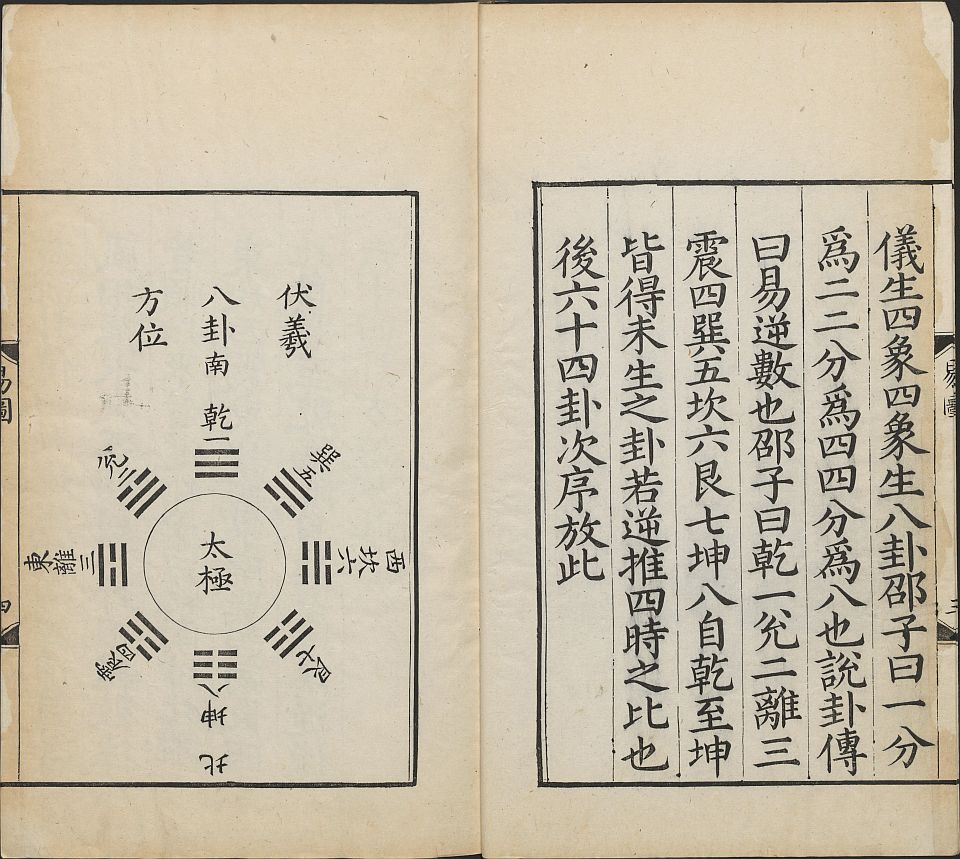 儀生四象四象生八卦邵子曰一分
爲二二分爲四四分爲八也說卦傳
曰易逆數也邵子曰乾一兊二離三
震四巽五坎六艮七坤八自乾至坤
皆得未生之卦若逆推四時之比也
後六十四卦次序放此
易圖
三
伏羲
八卦
方位
南
乾一
巽五
西
坎六
艮七
坤八
北
震四
東
離三
兊二
太極
易圖
四